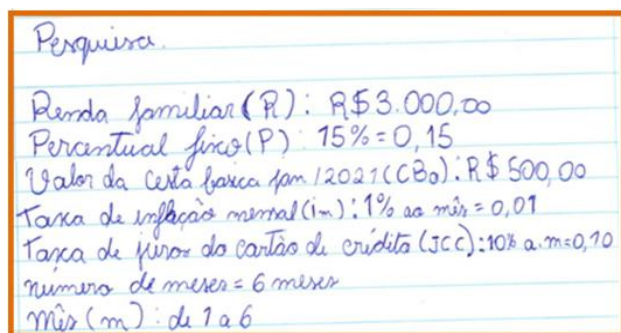 Pesquisa.
Renda familiar (R): R$3.000,00
Percentual fixo (P): 15% = 0,15
Valor da cesta básica jan/2021 (CB0): R$ 500,00
Taxa de inflação mensal (im): 1% ao mês = 0,01
Taxa de juros do cartão de crédito (JCC): 10% a.m = 0,10
número de meses = 6 meses
Mês (m): de 1 a 6